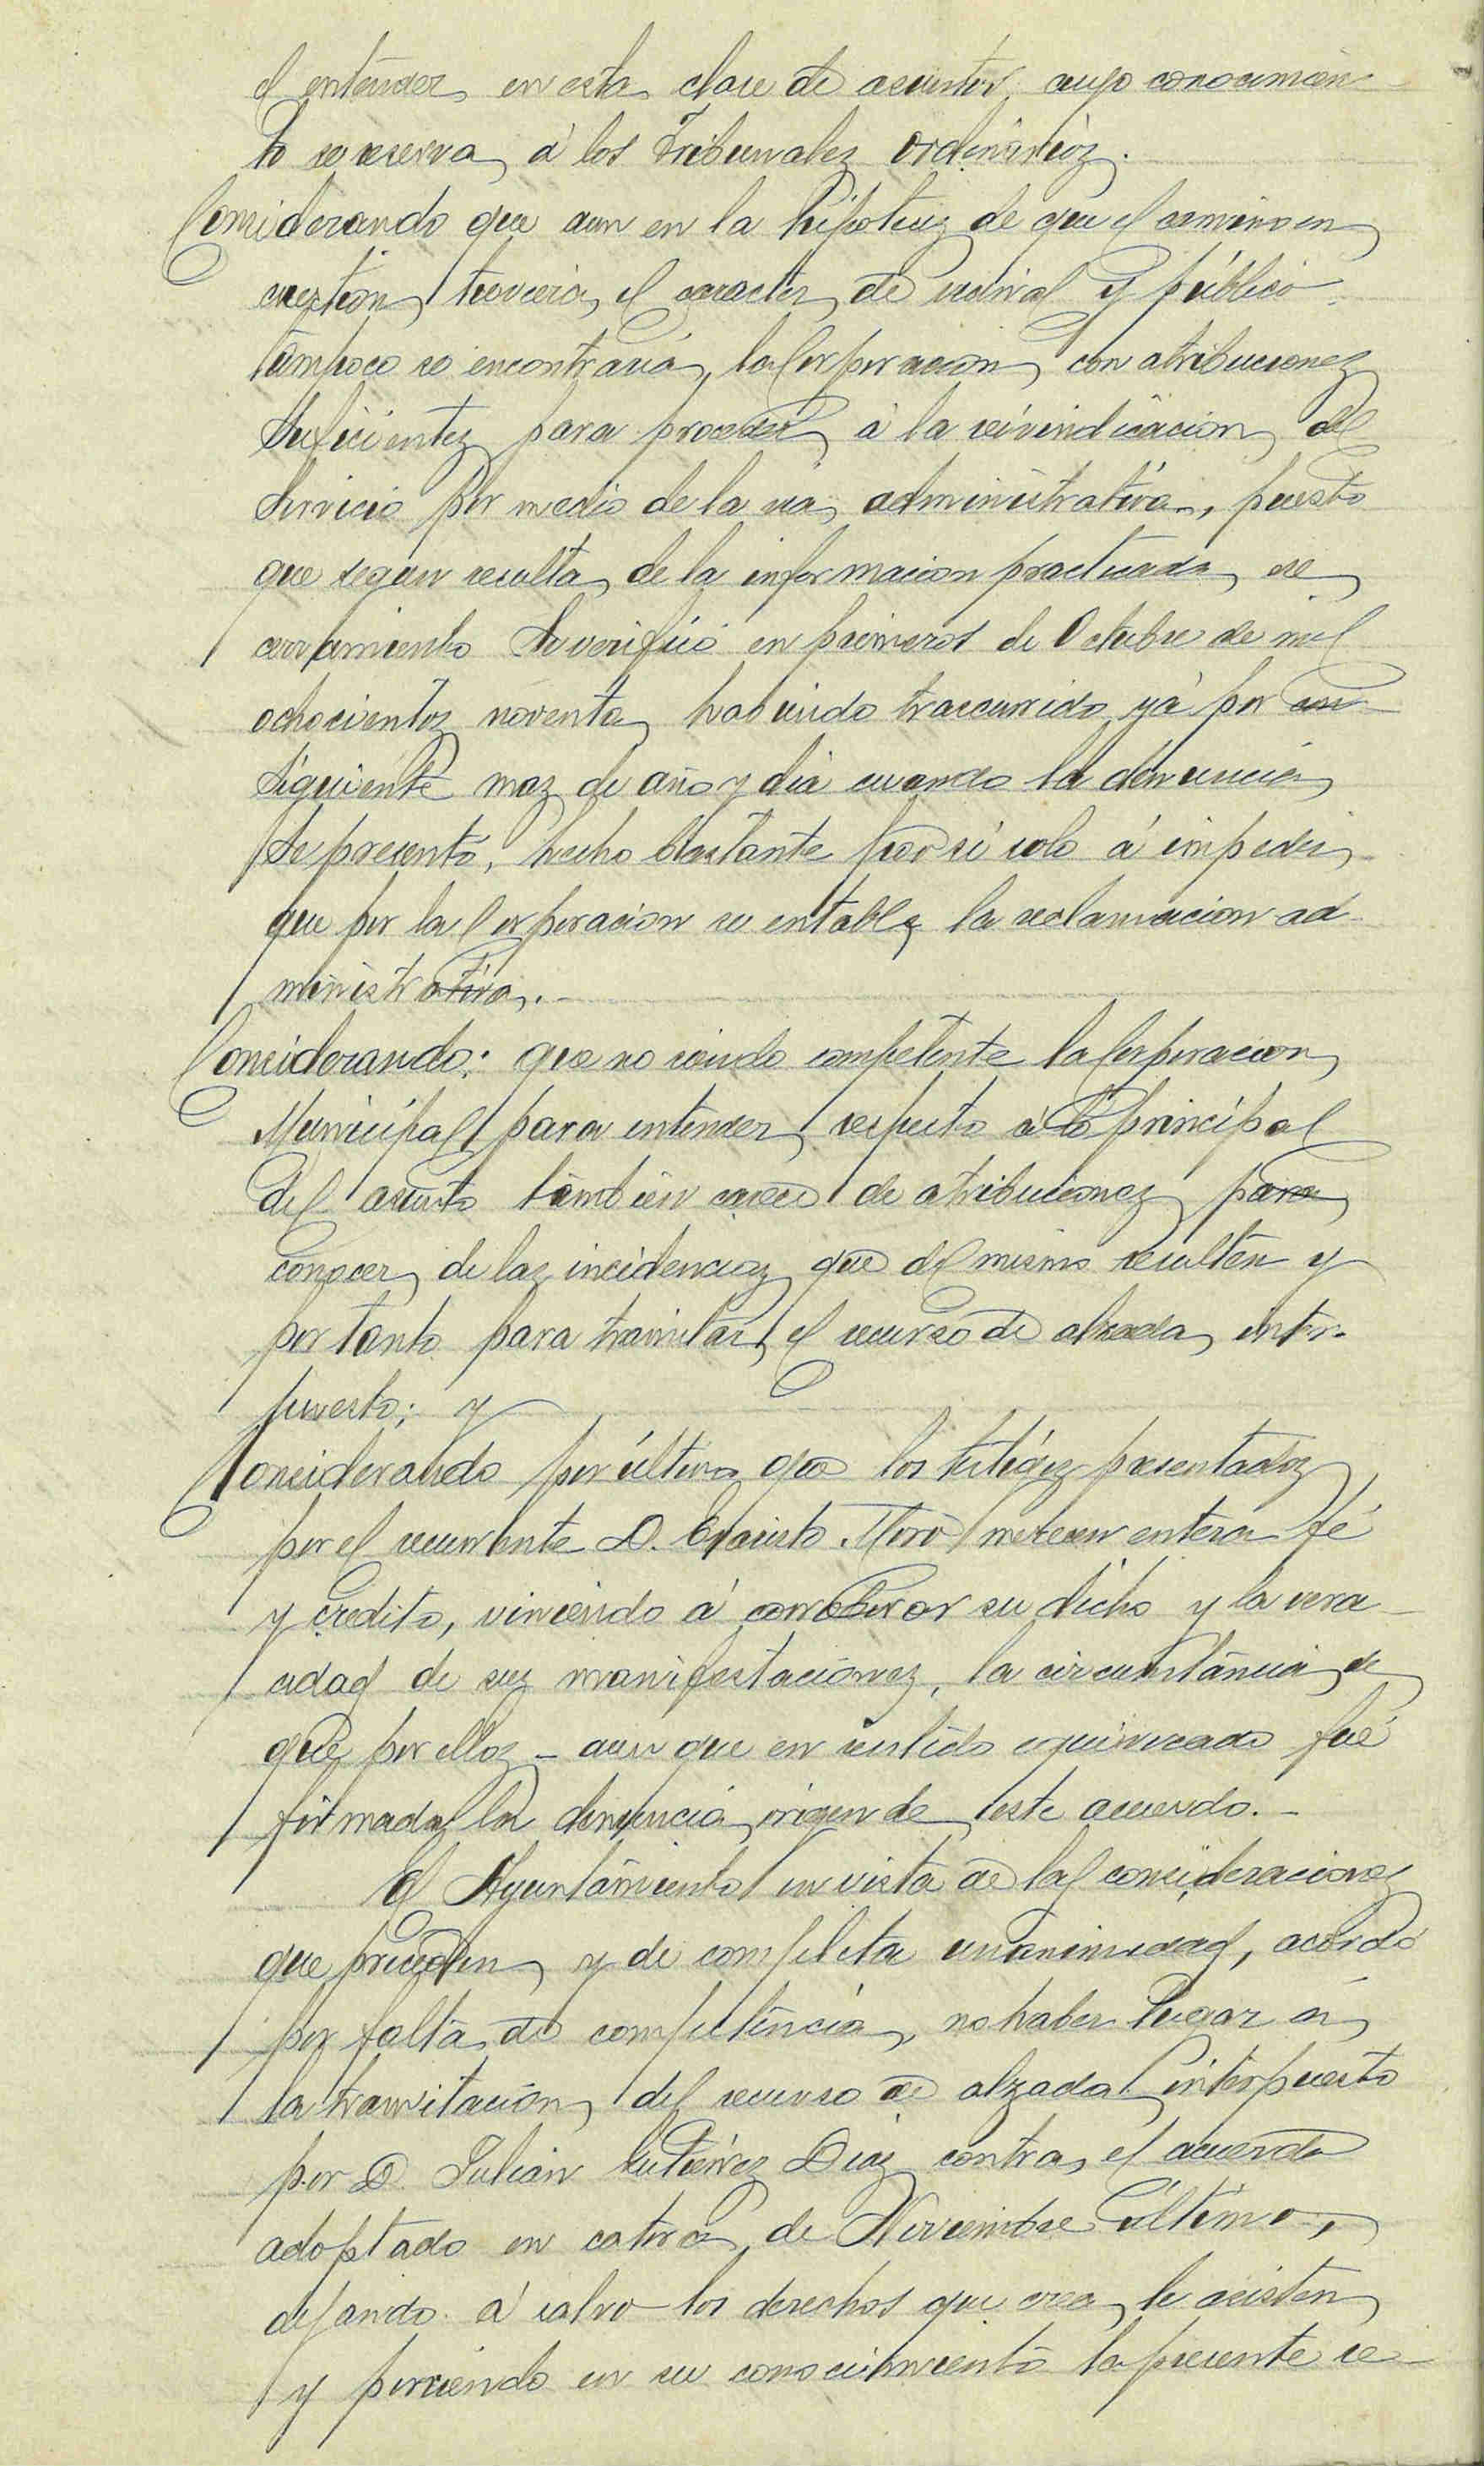 el entender en esta clase de asuntos, cuyo conocimien-
to se reserva á los Tribunales ordinarioz.
Considerando que aun en la hipotesiz de que el camino en
cuestion tuviera el caracter de vecinal y público
tampoco se encontraria, la Corporacion con atribucionez
suficientez para proceder á la reivindicacion del
servicio por medio de la via administrativa, puesto
que segun resulta de la informacion practicada, ese
cerramiento se verificó en primeros de Octubre de mil
ochocientoz noventa, habiendo trascurrido yá por con-
siguiente maz de año y dia cuando la denuncia
se presentó, hecho bastante por si solo á impedir
que por la Corporacion se entable la reclamacion ad-
ministrativa.
Considerando: que no siendo competente la Corporacion
Municipal para entender respecto á lo principal
del asunto tambien carece de atribucionez para
conocer de laz incidenciaz que del mismo resulten y
por tanto para tramitar el recurso de alzada inter-
puesto; y
Considerando por último que los presentadoz
por el recurrente D. Evaristo Moro merecen entera fé
y credito, viniendo á corroborar su dicho y la vera-
cidad de suz manifestacionez, la circunstancia de
que por elloz - aun que en sentido equivocado fué
firmada la denuncia origen de este acuerdo.-
El Ayuntamiento en vista de las consideracionez
que preceden y de completa unanimidad, acordó
por falta de competencia, no haber lugar á
la tramitacion del recurso de alzada interpuesto
por D. Julian Gutierrez Diaz contra el acuerdo
adoptado en catorce de Noviembre último,
dejando á salvo los derechos que crea le asisten
y poniendo en su conocimiento la presente re-